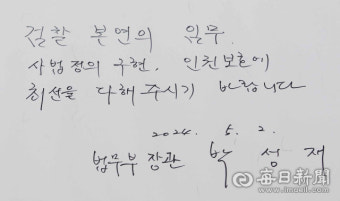 검찰 본연의 임무.
사법정의 구현, 인권보호에
최선을 다해 주시기 바랍니다
2024. 5. 2.
법무부장관 박성재
每日新聞
www.imaeil.com